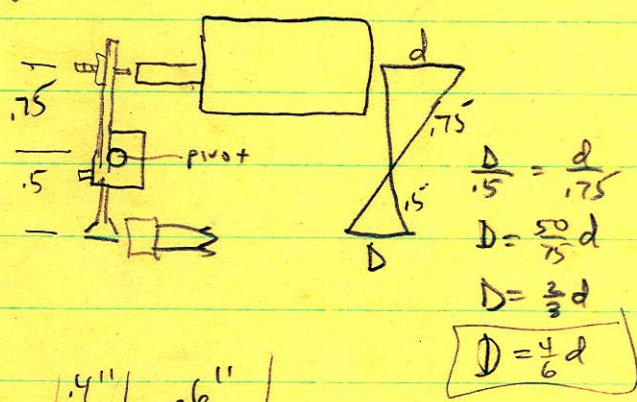 d
.75
pivot
.5
.75
.5
D
D/.5 = d/.75
D = 50/75 d
D = 2/3 d
D = 4/6 d
.4" .6"